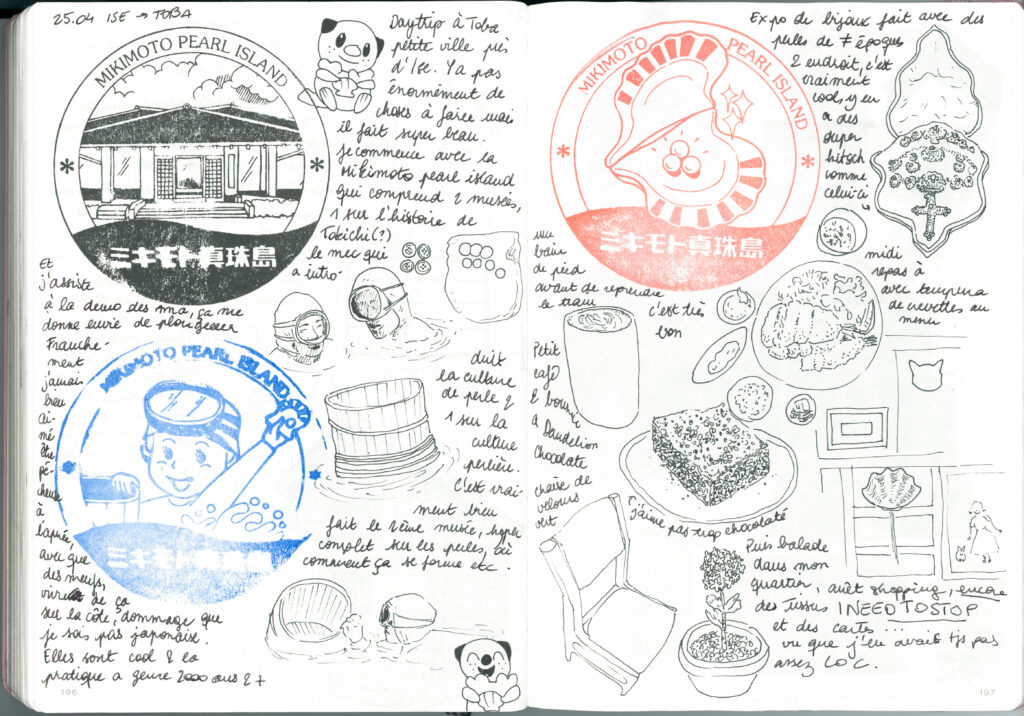 25.04 ISE → TOBA
MIKIMOTO PEARL ISLAND
ミキモト真珠島
Daytrip à Toba
petite ville près
d'Ise. Ya pas
énormément de
choses à faire mais
il fait super beau.
Je commence avec la
Mikimoto pearl island
qui comprend 2 musées,
1 sur l'histoire de
Tokichi(?)
le mec qui
a intro-
duit
la culture
de perle &
1 sur la
culture
perlière.
C'est vrai-
ment bien
fait le 2ème musée, hyper
complet sur les perles, où
comment ça se forme etc.
Et
j'assiste
à la demo des ama, ça me
donne envie de plonger
Franche-
ment
j'aurais
bien
ai-
mé
être
pê-
cheuse
à
l'apnée,
avec que
des meufs,
vivre de ça
sur la côte, dommage que
je sois pas japonaise.
Elles sont cool & la
pratique a genre 2000 ans & +
MIKIMOTO PEARL ISLAND
ミキモト真珠島
196
MIKIMOTO PEARL ISLAND
ミキモト真珠島
Expo de bijoux fait avec des
perles de ≠ époques
& endroit, c'est
vraiment
cool, y en
a des
super
kitsch
comme
celui-ci
midi
repas à
avec tempura
de crevettes au
menu
c'est très
bon
bain
de pied
avant de reprendre
le train
Petit
café
& bourse
à Dandelion
Chocolate
chaise de
velours
vert
j'aime pas trop chocolaté
Puis balade
dans mon
quartier, arrêt shopping, encore
des tissus I NEED TO STOP
et des cartes ...
vu que j'en avais tjs pas
assez LOL.
197